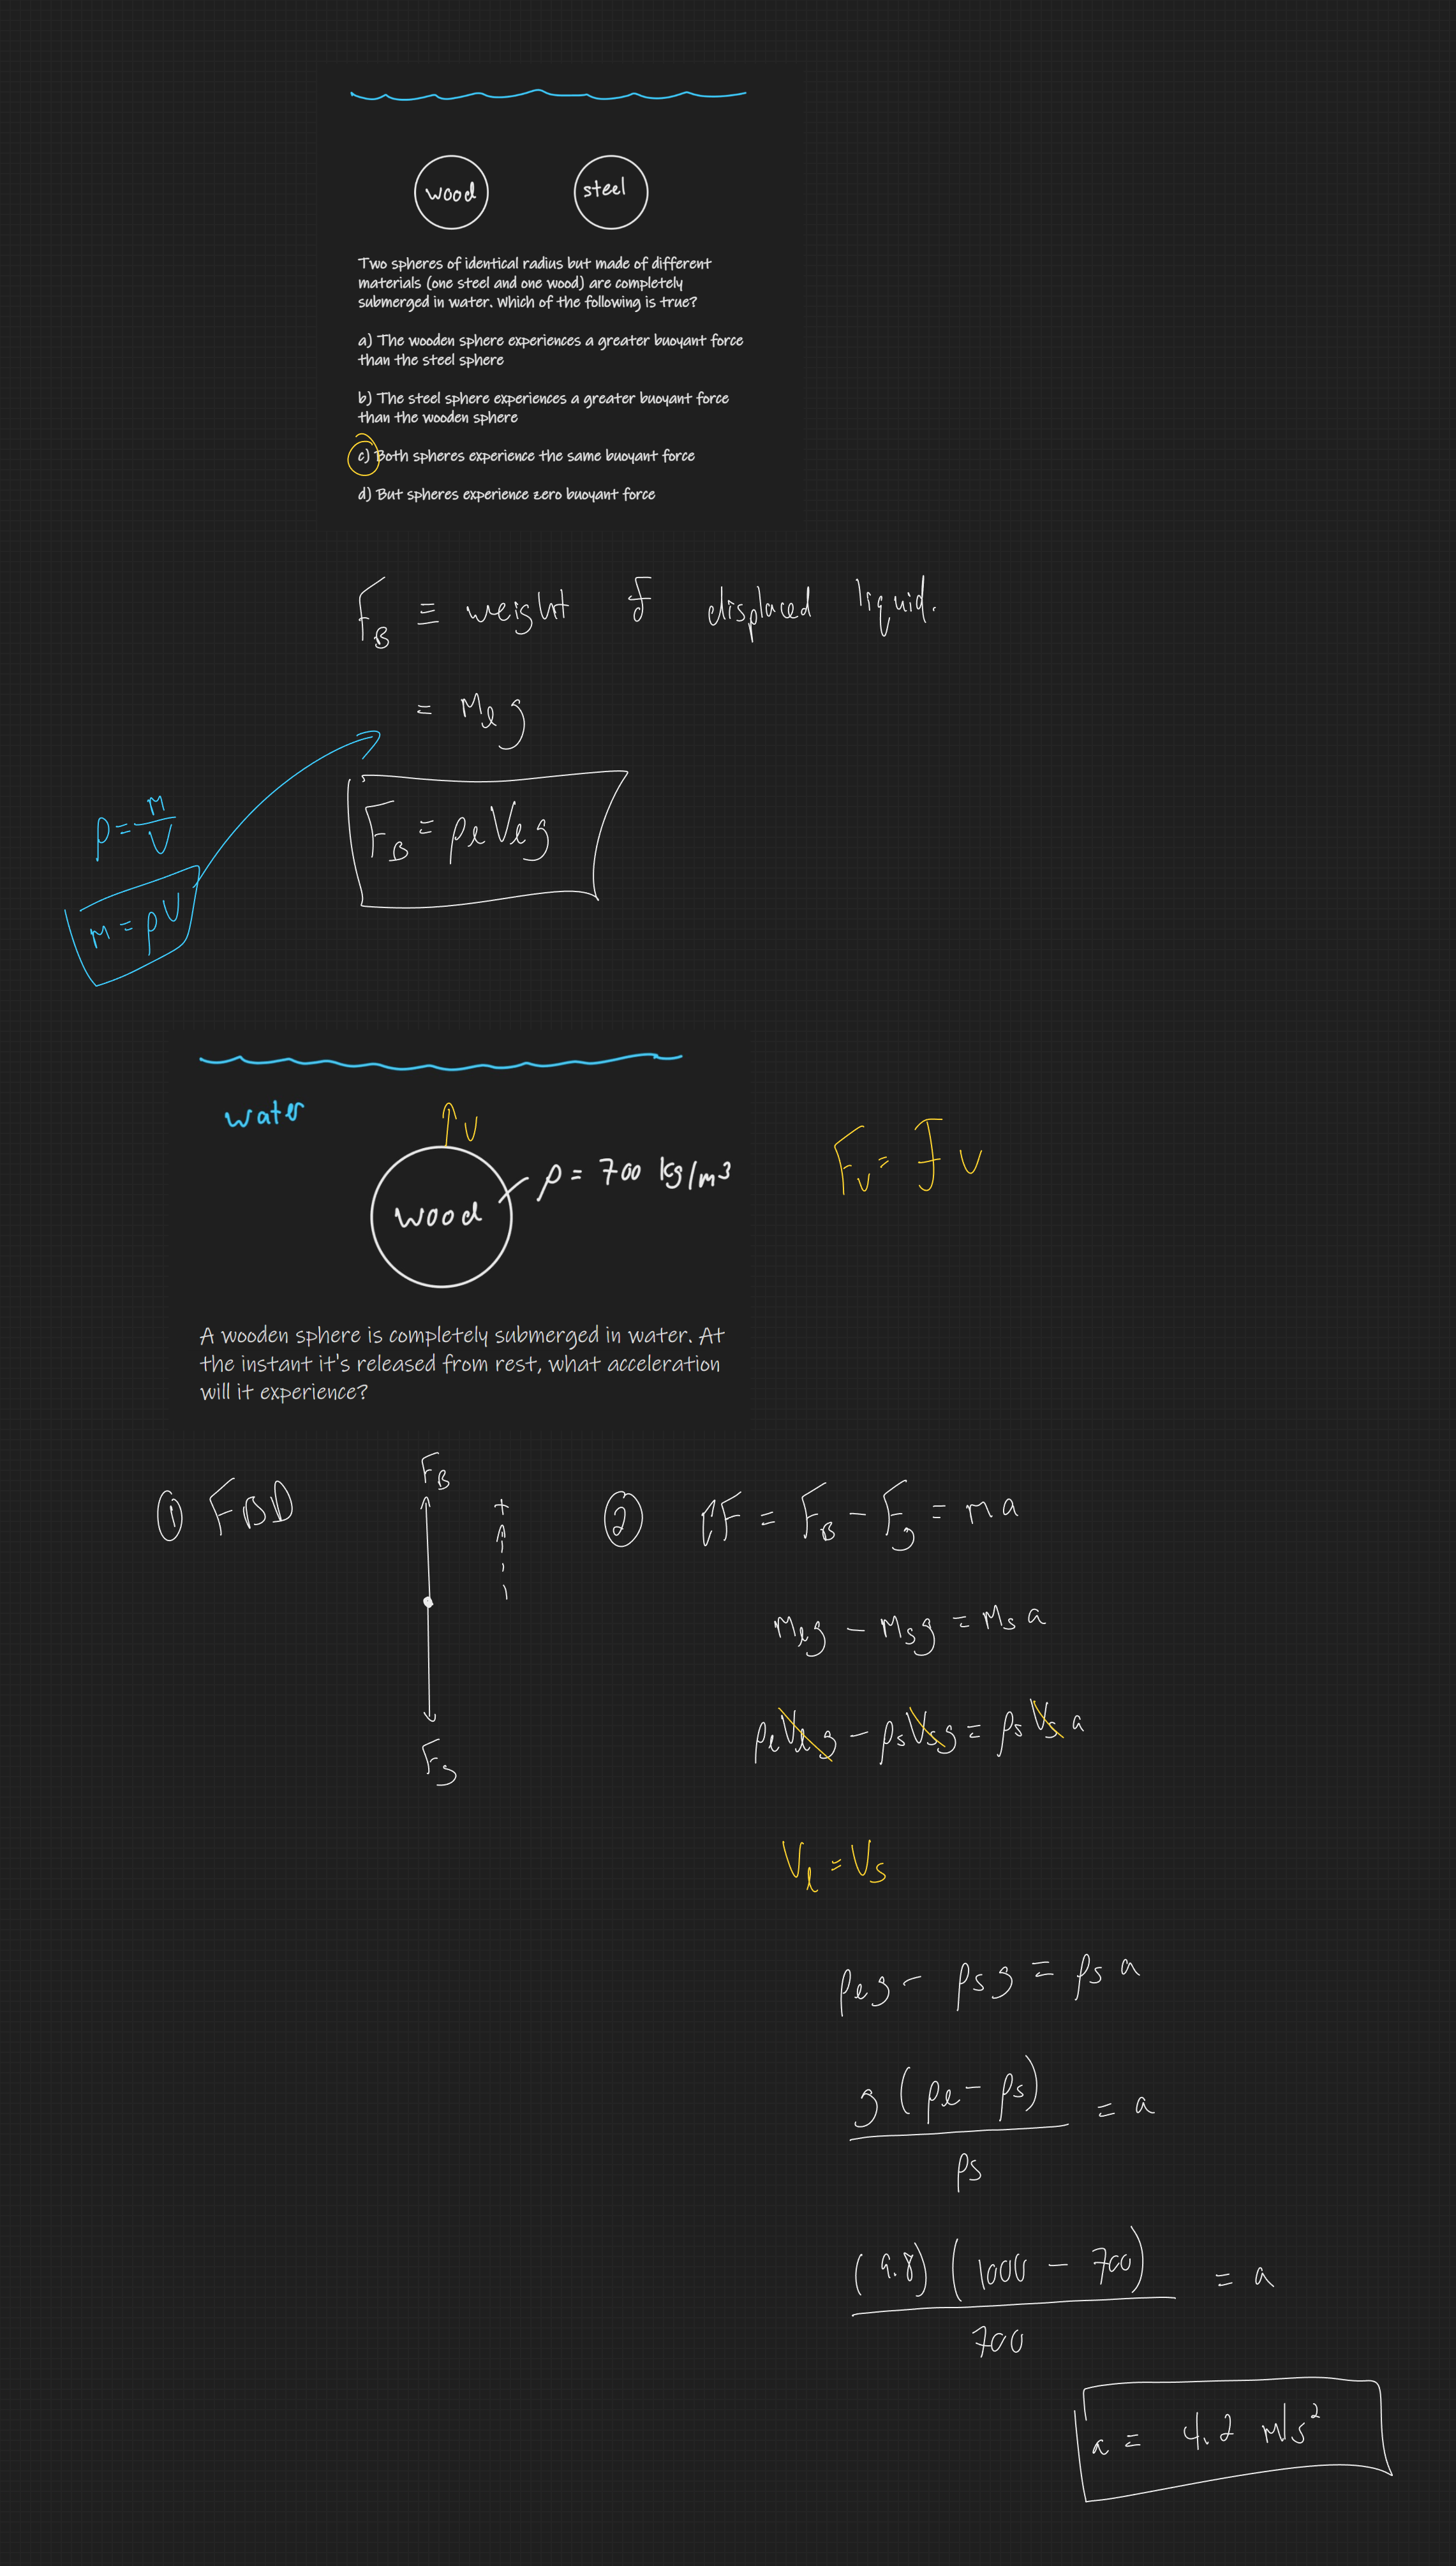 wood
steel
Two spheres of identical radius but made of different
materials (one steel and one wood) are completely
submerged in water. Which of the following is true?
a) The wooden sphere experiences a greater buoyant force
than the steel sphere
b) The steel sphere experiences a greater buoyant force
than the wooden sphere
c) Both spheres experience the same buoyant force
d) But spheres experience zero buoyant force
F_B ≡ weight of displaced liquid.
= m_l g
ρ = m/V
m = ρV
F_B = ρ_l V_l g
water
v
ρ = 700 kg/m³
wood
F_v = f v
A wooden sphere is completely submerged in water. At
the instant it's released from rest, what acceleration
will it experience?
① FBD
F_B
+
F_g
② ΣF = F_B - F_g = ma
m_l g - m_s g = m_s a
ρ_l V_l g - ρ_s V_s g = ρ_s V_s a
V_l = V_s
ρ_l g - ρ_s g = ρ_s a
g (ρ_l - ρ_s) / ρ_s = a
(9.8) (1000 - 700) / 700 = a
a = 4.2 m/s²